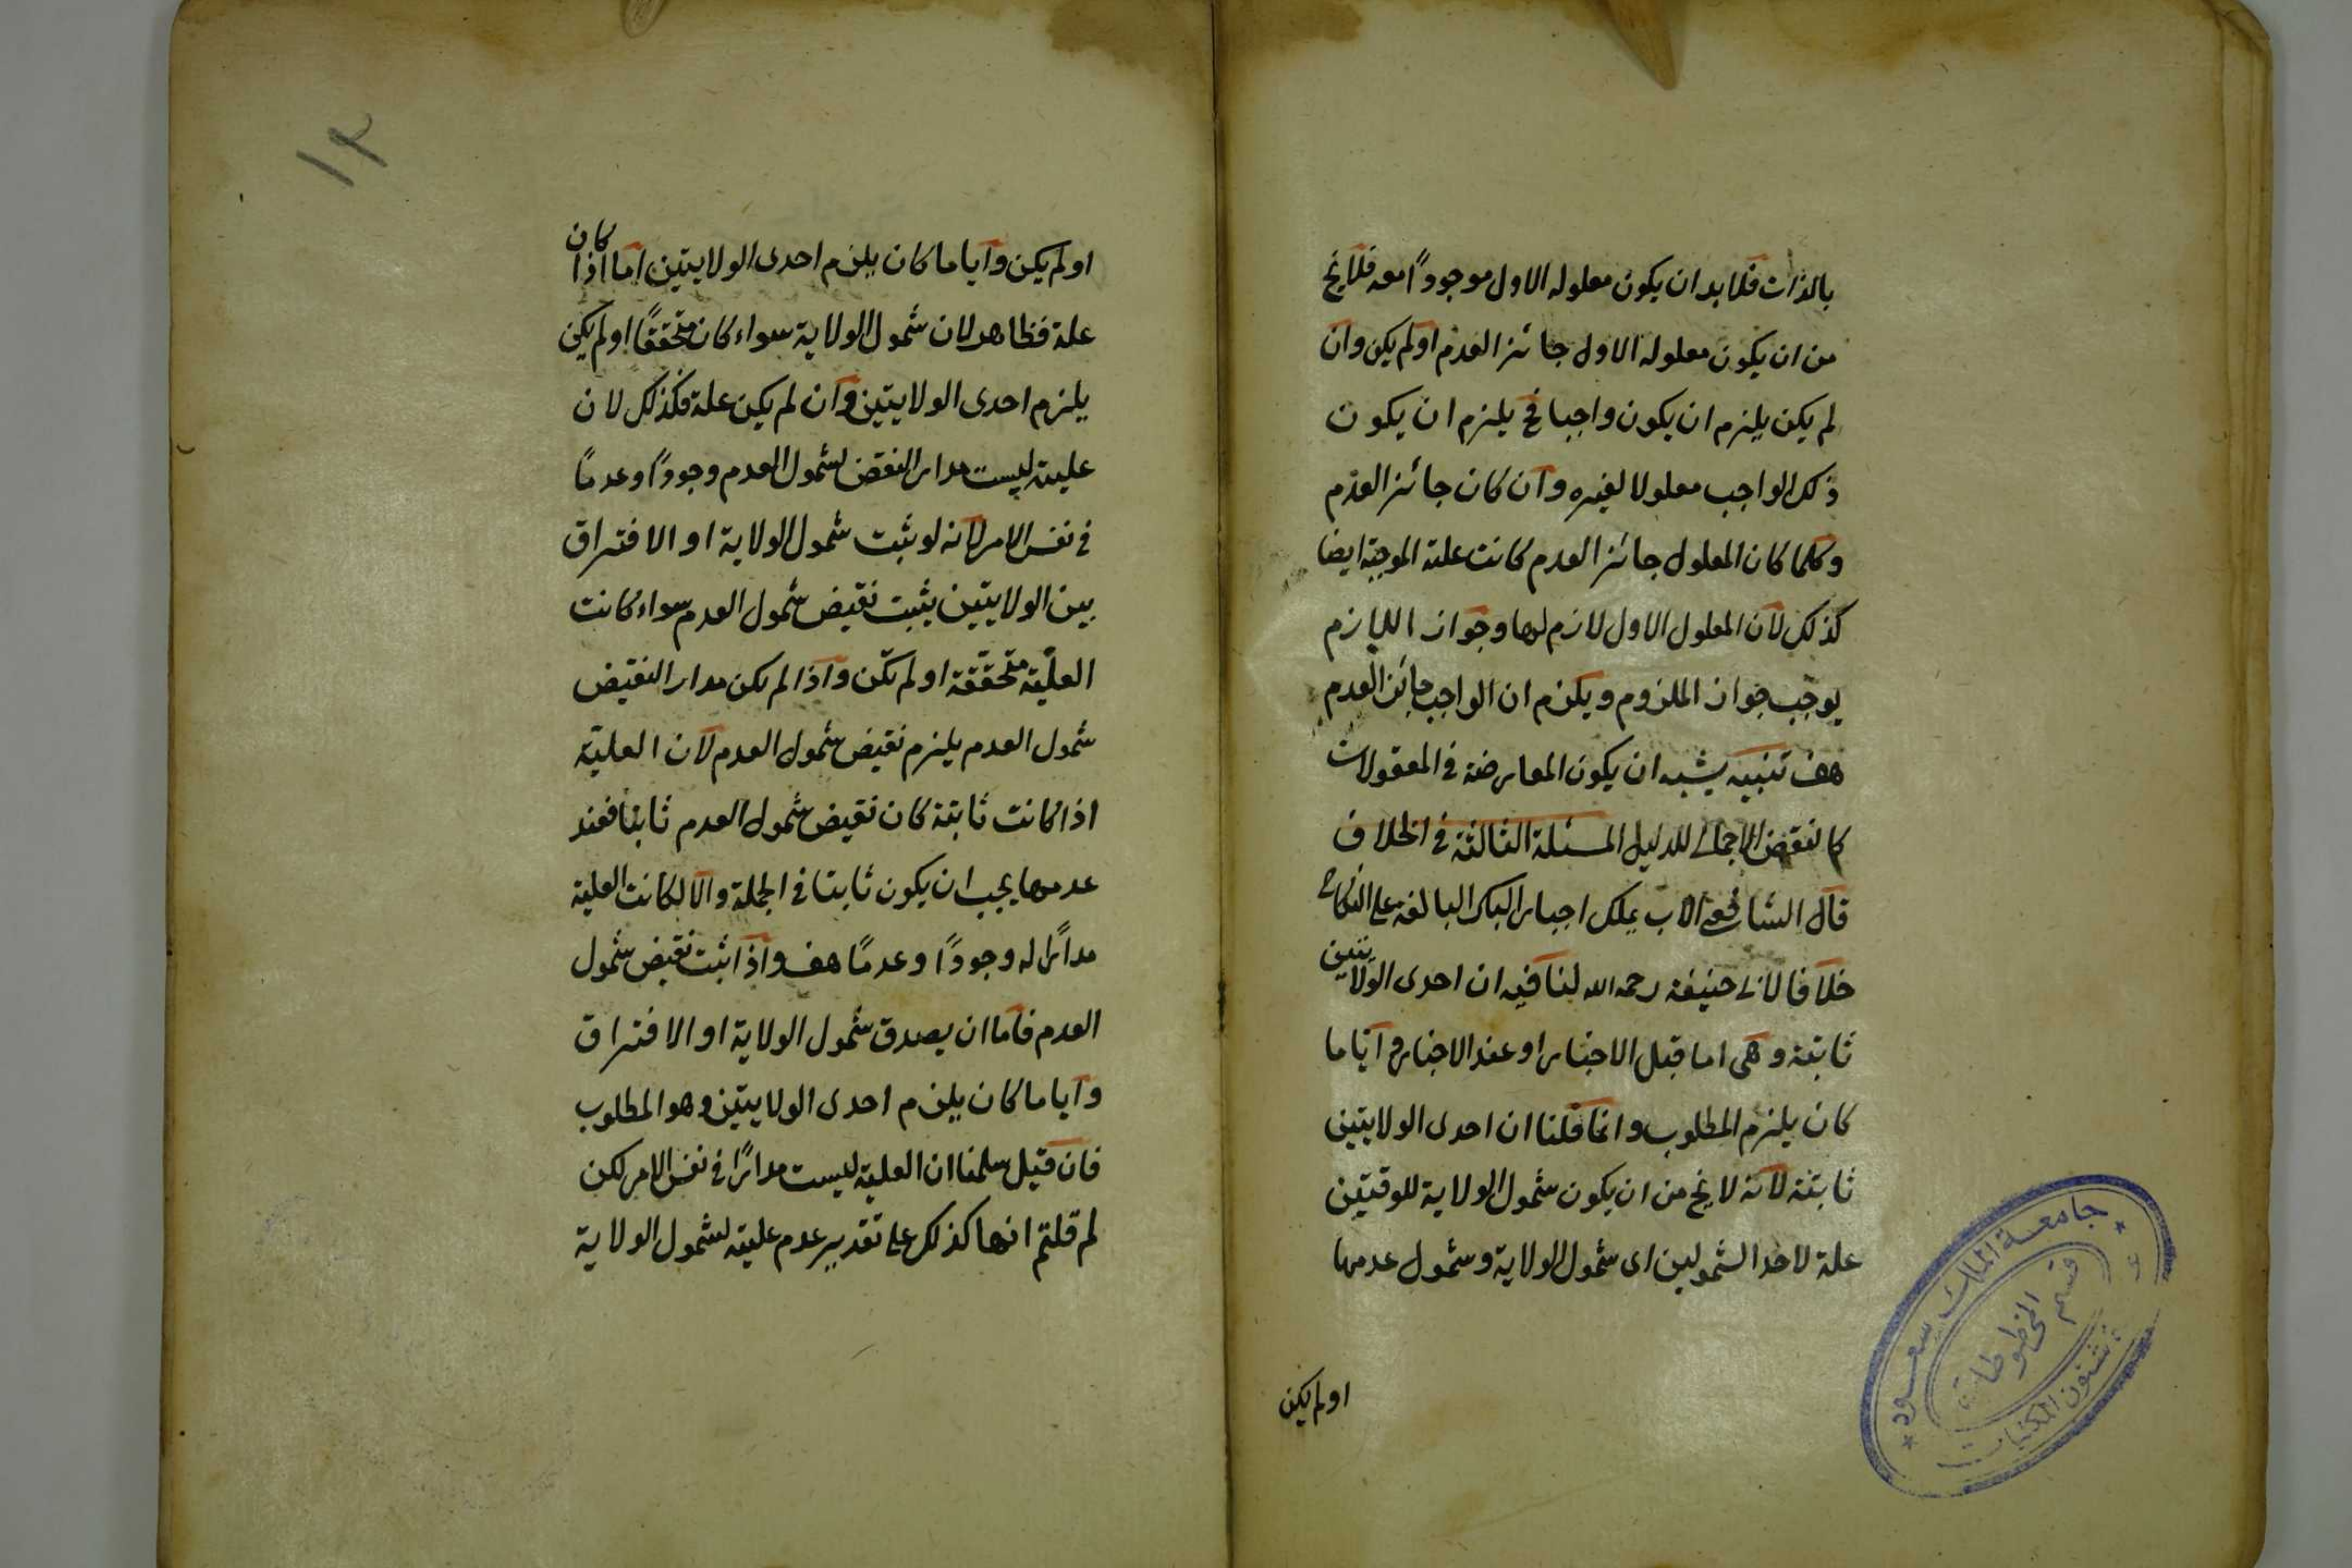 بالذات فلابد ان يكون معلوله الاول موجودًا معه فلايخ
من ان يكون معلوله الاول جائز العدم اولم يكن وان
لم يكن يلزم ان يكون واجبا فح يلزم ان يكون
ذلك الواجب معلولا لغيره وان كان جائز العدم
وكلما كان المعلول جائز العدم كانت علته الموجبة ايضا
كذلك لان المعلول الاول لازم لها وجواز اللازم
يوجب جواز الملزوم ويلزم ان الواجب جائز العدم
هف تنبيه يشبه ان يكون المعارضة في المعقولات
كالنقض الاجمالي للدليل المسئلة الثالثة في الخلاف
قال الشافعي الاب يملك اجبار البكر البالغة على النكاح
خلافا لابي حنيفة رحمه الله لنا فيه ان احدى الولايتين
ثابتة وهي اما قبل الاجبار او عند الاجبار وايا ما
كان يلزم المطلوب وانما قلنا ان احدى الولايتين
ثابتة لانه لايخ من ان يكون شمول الولاية للوقتين
علة لاحد الشمولين اى شمول الولاية وشمول عدمها
اولم يكن
١٢
اولم يكن وايا ما كان يلزم احدى الولايتين اما اذا كان
علة فظاهر لان شمول الولاية سواء كان متحققًا اولم يكن
يلزم احدى الولايتين وان لم يكن علة فكذلك لان
عليته ليست مدار النقض لشمول العدم وجودًا وعدمًا
في نفس الامر لانه لو ثبت شمول الولاية او الافتراق
بين الولايتين يثبت نقيض شمول العدم سواء كانت
العليّة متحققة اولم تكن واذا لم يكن مدار النقيض
شمول العدم يلزم نقيض شمول العدم لان العليّة
اذا كانت ثابتة كان نقيض شمول العدم ثابتا فعند
عدمها يجب ان يكون ثابتا في الجملة والا لكانت العلية
مدارًا له وجودًا وعدمًا هف واذا ثبت نقيض شمول
العدم فاما ان يصدق شمول الولاية او الافتراق
وايا ما كان يلزم احدى الولايتين وهو المطلوب
فان قيل سلمنا ان العلية ليست مدارًا في نفس الامر لكن
لم قلتم انها كذلك على تقدير عدم عليته لشمول الولاية
جامعة الملك سعود
قسم المخطوطات
شئون المكتبات